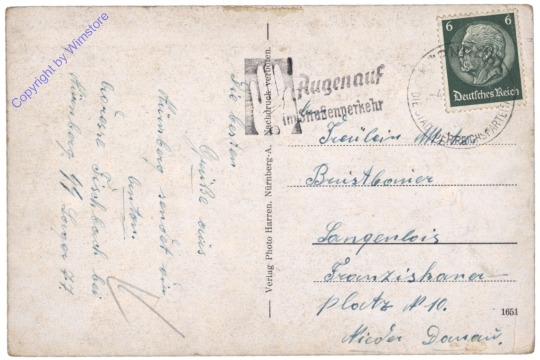 Copyright by Wimstore
Die besten
Grüße aus
Nürnberg sendet
Anton.
Adresse Fischbach bei
Nürnberg
Verlag Photo Harren. Nürnberg-A. Nachdruck verboten.
Augen auf
im Straßenverkehr
6 6
Deutsches Reich
Fräulein
Langenlois
Franziskaner
Platz N 10.
Nieder Donau.
1651